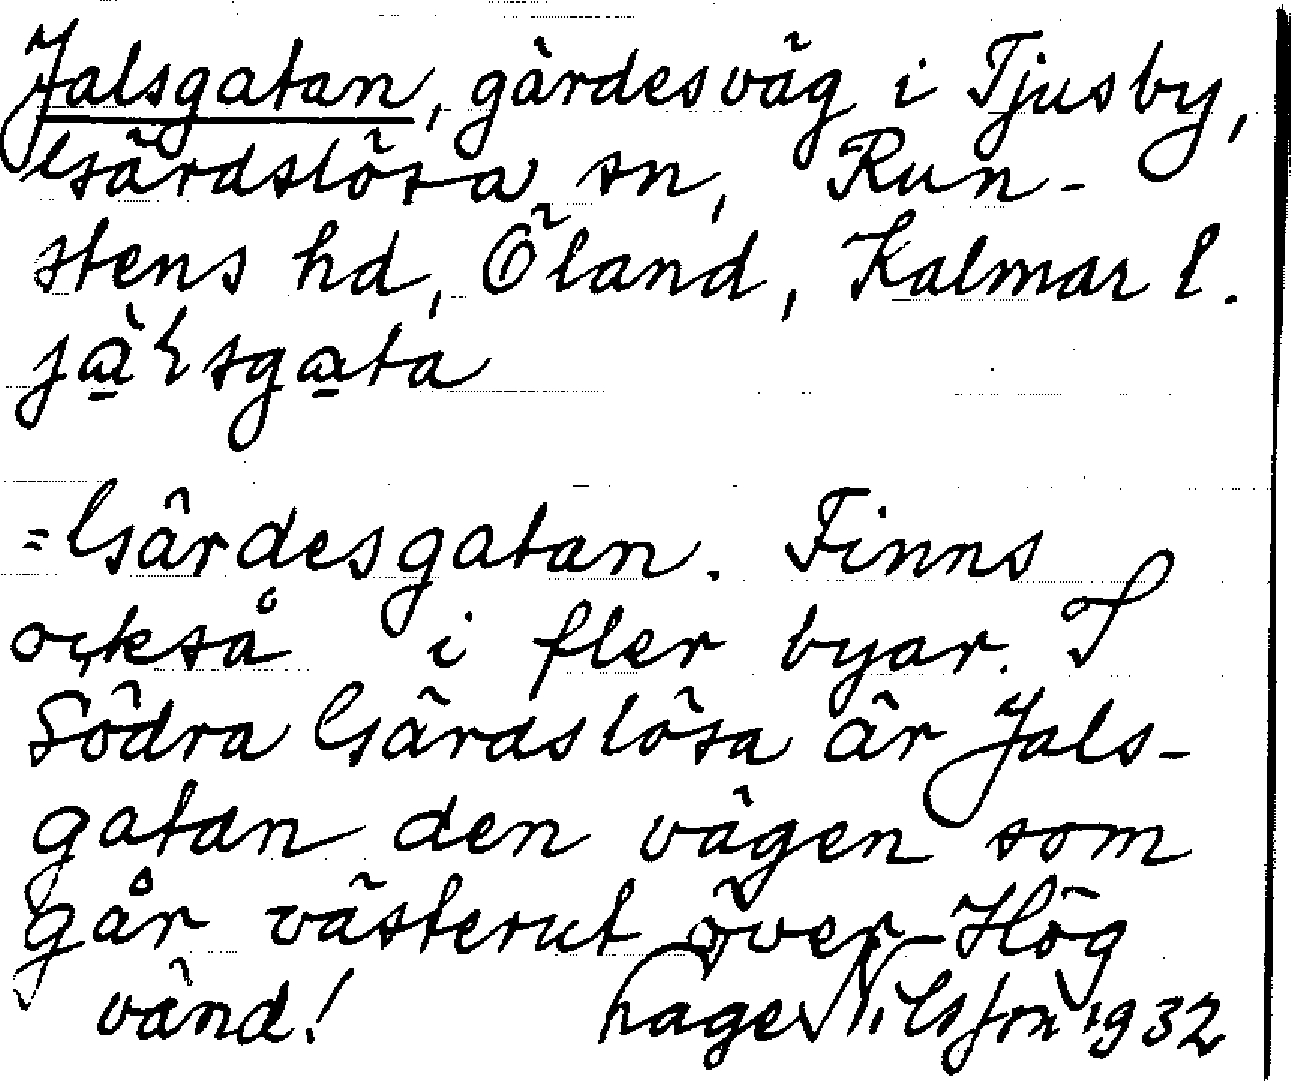 Jalsgatan, gärdesväg i Tjusby,
Gärdslösa sn, Run-
stens hd, Öland, Kalmar l.
jàlsgata
=Gärdesgatan. Finns
också i fler byar. I
Södra Gärdslösa är Jals-
gatan den vägen som
går västerut över Hög
vänd! hagen Nilsson 1932